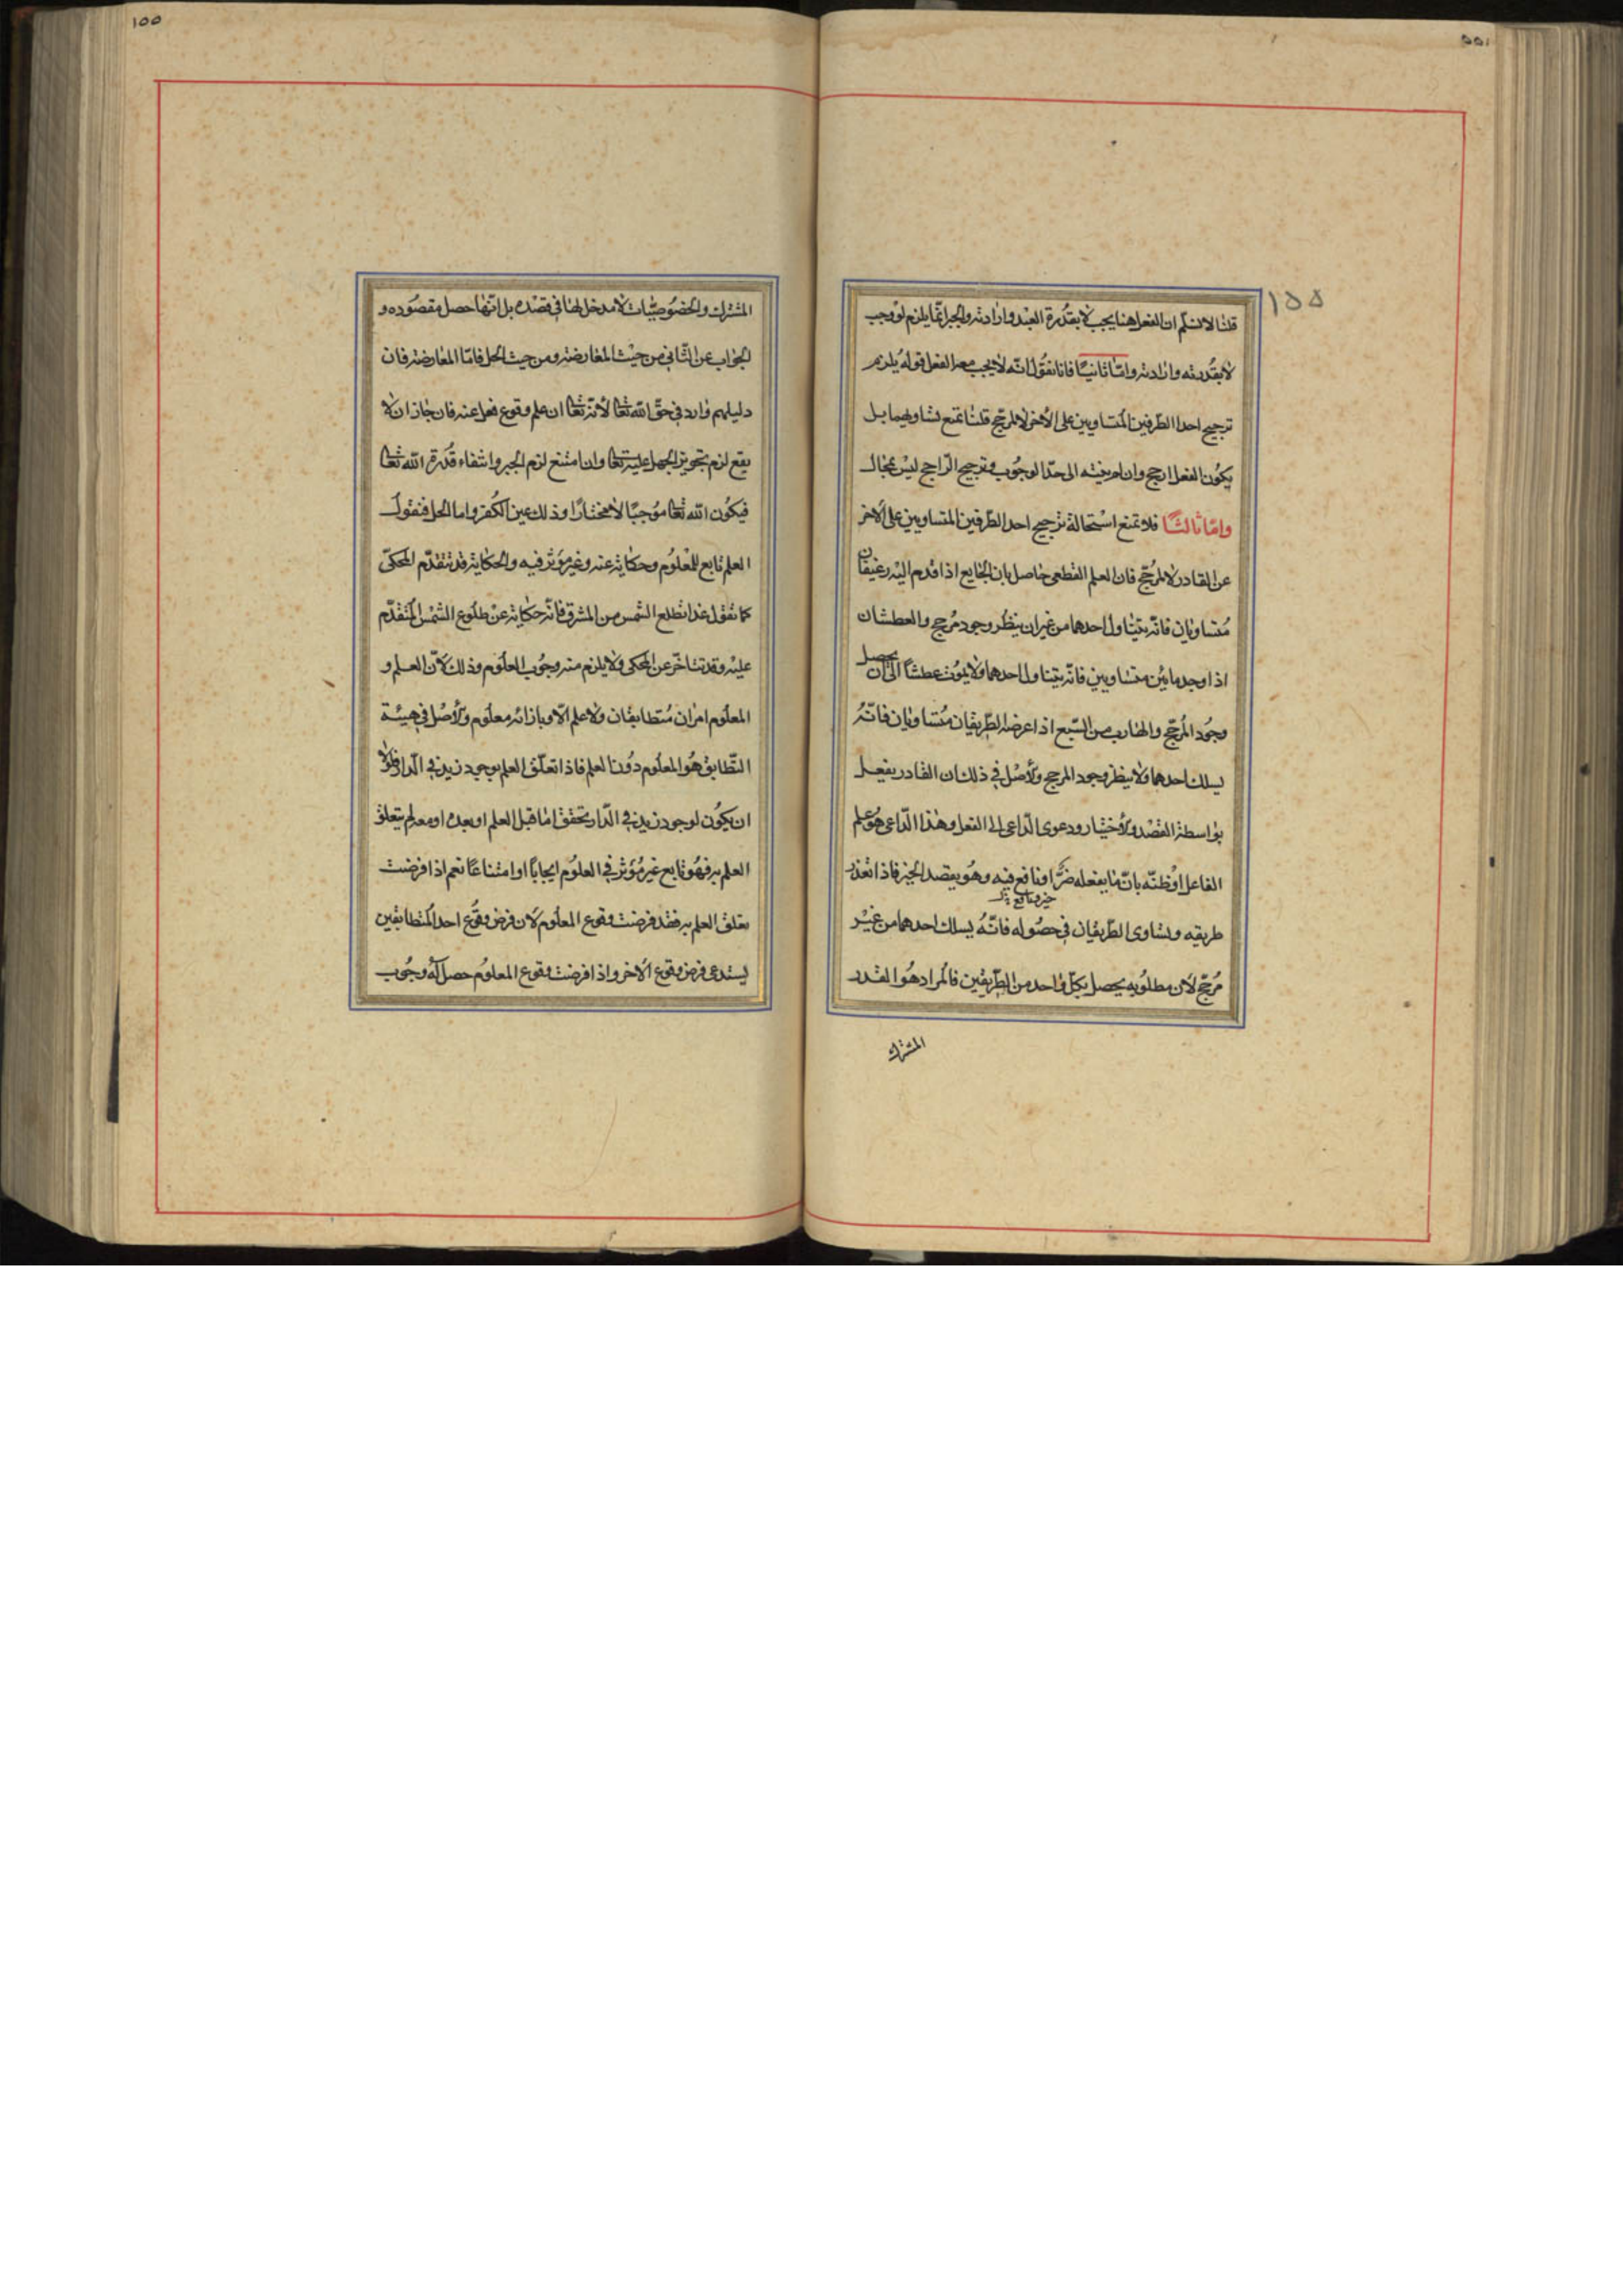 ١٥٥
قلنا لا نسلم ان الفعل هنا يجب لا بقدرة العبد وارادته والجبر انما يلزم لو وجب
لا بقدرته وارادته واما ثانيا فانا نقول انه لا يجب معه الفعل قوله يلزم
ترجيح احد الطرفين المتساويين على الاخر لا لمرجح قلنا نمنع تساويهما بل
يكون الفعل ارجح وان لم ينته الى حد الوجوب وترجيح الراجح ليس بمحال
واما ثالثا فلا نمنع استحالة ترجيح احد الطرفين المتساويين على الاخر
عن القادر لا لمرجح فان العلم القطعى حاصل بان الجايع اذا قدم اليه رغيفان
متساويان فانه يتناول احدهما من غير ان ينظر وجود مرجح والعطشان
اذا وجد مائين متساويين فانه يتناول احدهما ولا يموت عطشا الى ان يحصل
وجود المرجح والهارب من السبع اذا عرضه الطريقان متساويان فانه
يسلك احدهما ولا ينظر وجود المرجح والاصل في ذلك ان القادر يفعل
بواسطة القصد والاختيار ودعوى الداعى الى الفعل وهذا الداعى هو علم
الفاعل او ظنه بان ما يفعله ضرا او نافع فيه وهو يقصد الخير فاذا تعذر
طريقه وتساوى الطريقان في حصوله فانه يسلك احدهما من غير
مرجح لان مطلوبه يحصل بكل واحد من الطريقين فالمراد هو القدر
المشترك
١٥٥
المشترك والخصوصيات لا مدخل لها في قصده بل انها حصل مقصوده و
الجواب عن الثانى من حيث المعارضة ومن حيث الحل فاما المعارضة فان
دليلهم وارد في حق الله تعا لانه تعا ان علم وقوع فعل عنه فان جاز ان لا
يقع لزم تجويز الجهل عليه تعا وان امتنع لزم الجبر وانتفاء قدرة الله تعا
فيكون الله تعا موجبا لا مختارا وذلك عين الكفر واما الحل فنقول
العلم تابع للمعلوم وحكاية عنه وغير مؤثر فيه والحكاية قد تتقدم المحكى
كما نقول غدا تطلع الشمس من المشرق فانه حكاية عن طلوع الشمس المتقدم
عليه وقد تتاخر عن المحكى ولا يلزم منه وجوب المعلوم وذلك لان العلم و
المعلوم امران متطابقان ولا علم الا وبازائه معلوم والاصل في هيئة
التطابق هو المعلوم دون العلم فاذا تعلق العلم بوجود زيد في الدار فلولا
ان يكون لوجود زيد في الدار تحقق اما قبل العلم او بعده او معه لم يتعلق
العلم به فهو تابع غير مؤثر في المعلوم ايجابا او امتناعا نعم اذا فرضت
تعلق العلم به فقد فرضت وقوع المعلوم لان فرض وقوع احد المتطابقين
يستدعى فرض وقوع الاخر واذا فرضت وقوع المعلوم حصل له وجوب